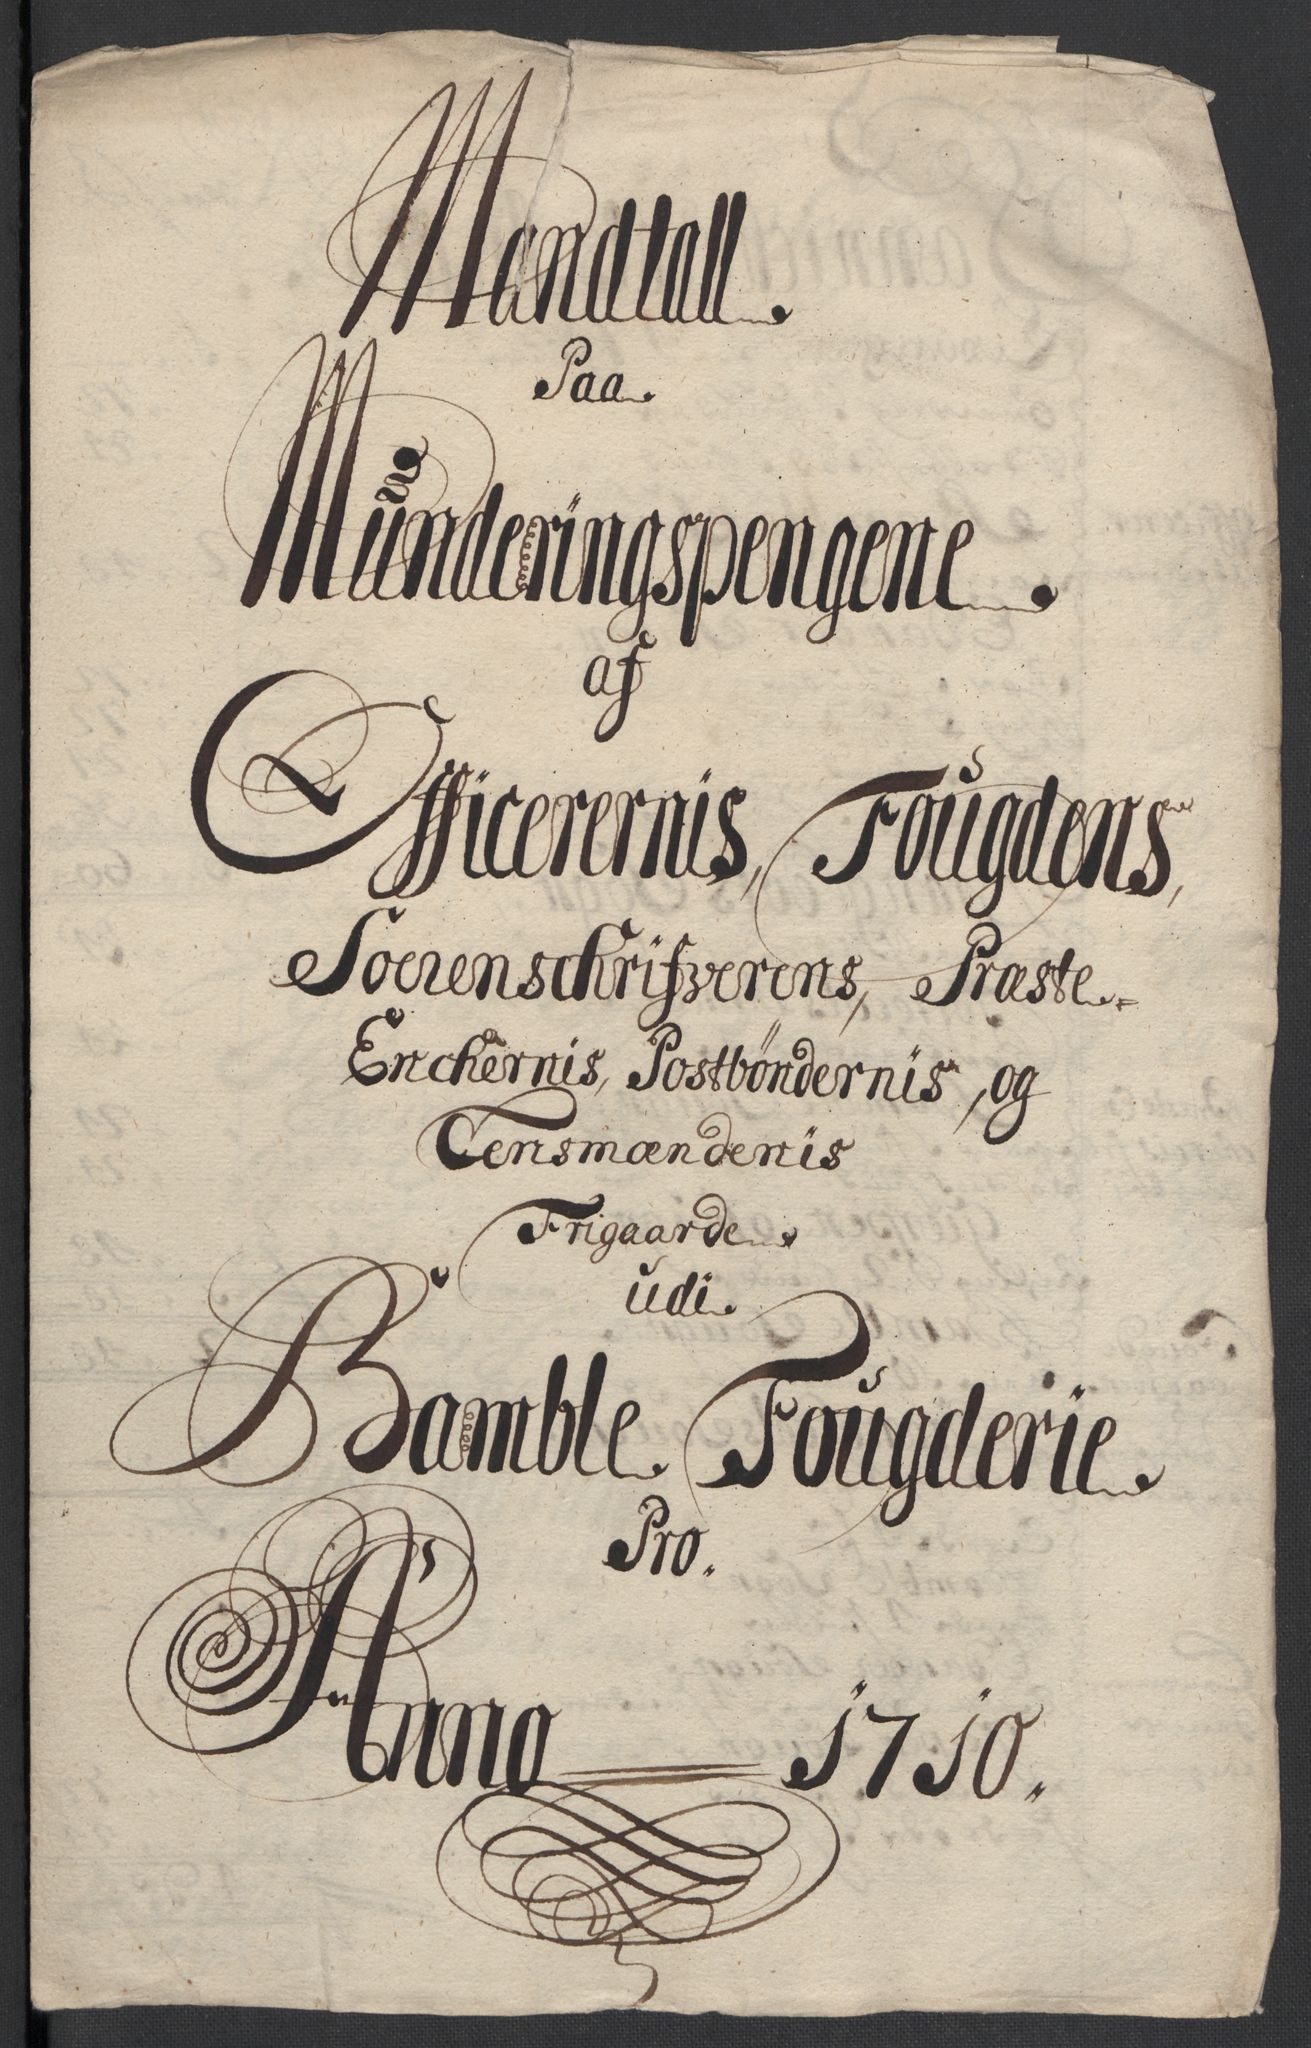 Mandtall
Paa
Münderingspengene
af
Officerernis, Foŭgdens,
Soerenschrifverens, Præste
Enckernis, Postböndernis, og
Lensmændenis
Frigaarde
udi
Bamble Foŭgderie
Pro.
Anno 1710.